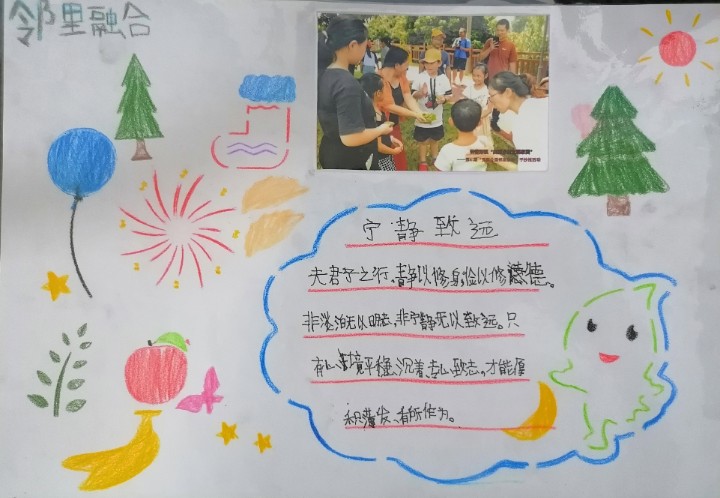 邻里融合
宁静致远
夫君子之行,静以修身,俭以修养德。
非淡泊无以明志,非宁静无以致远。只
有心境平稳,沉着、专心致志,才能厚
积薄发、有所作为。